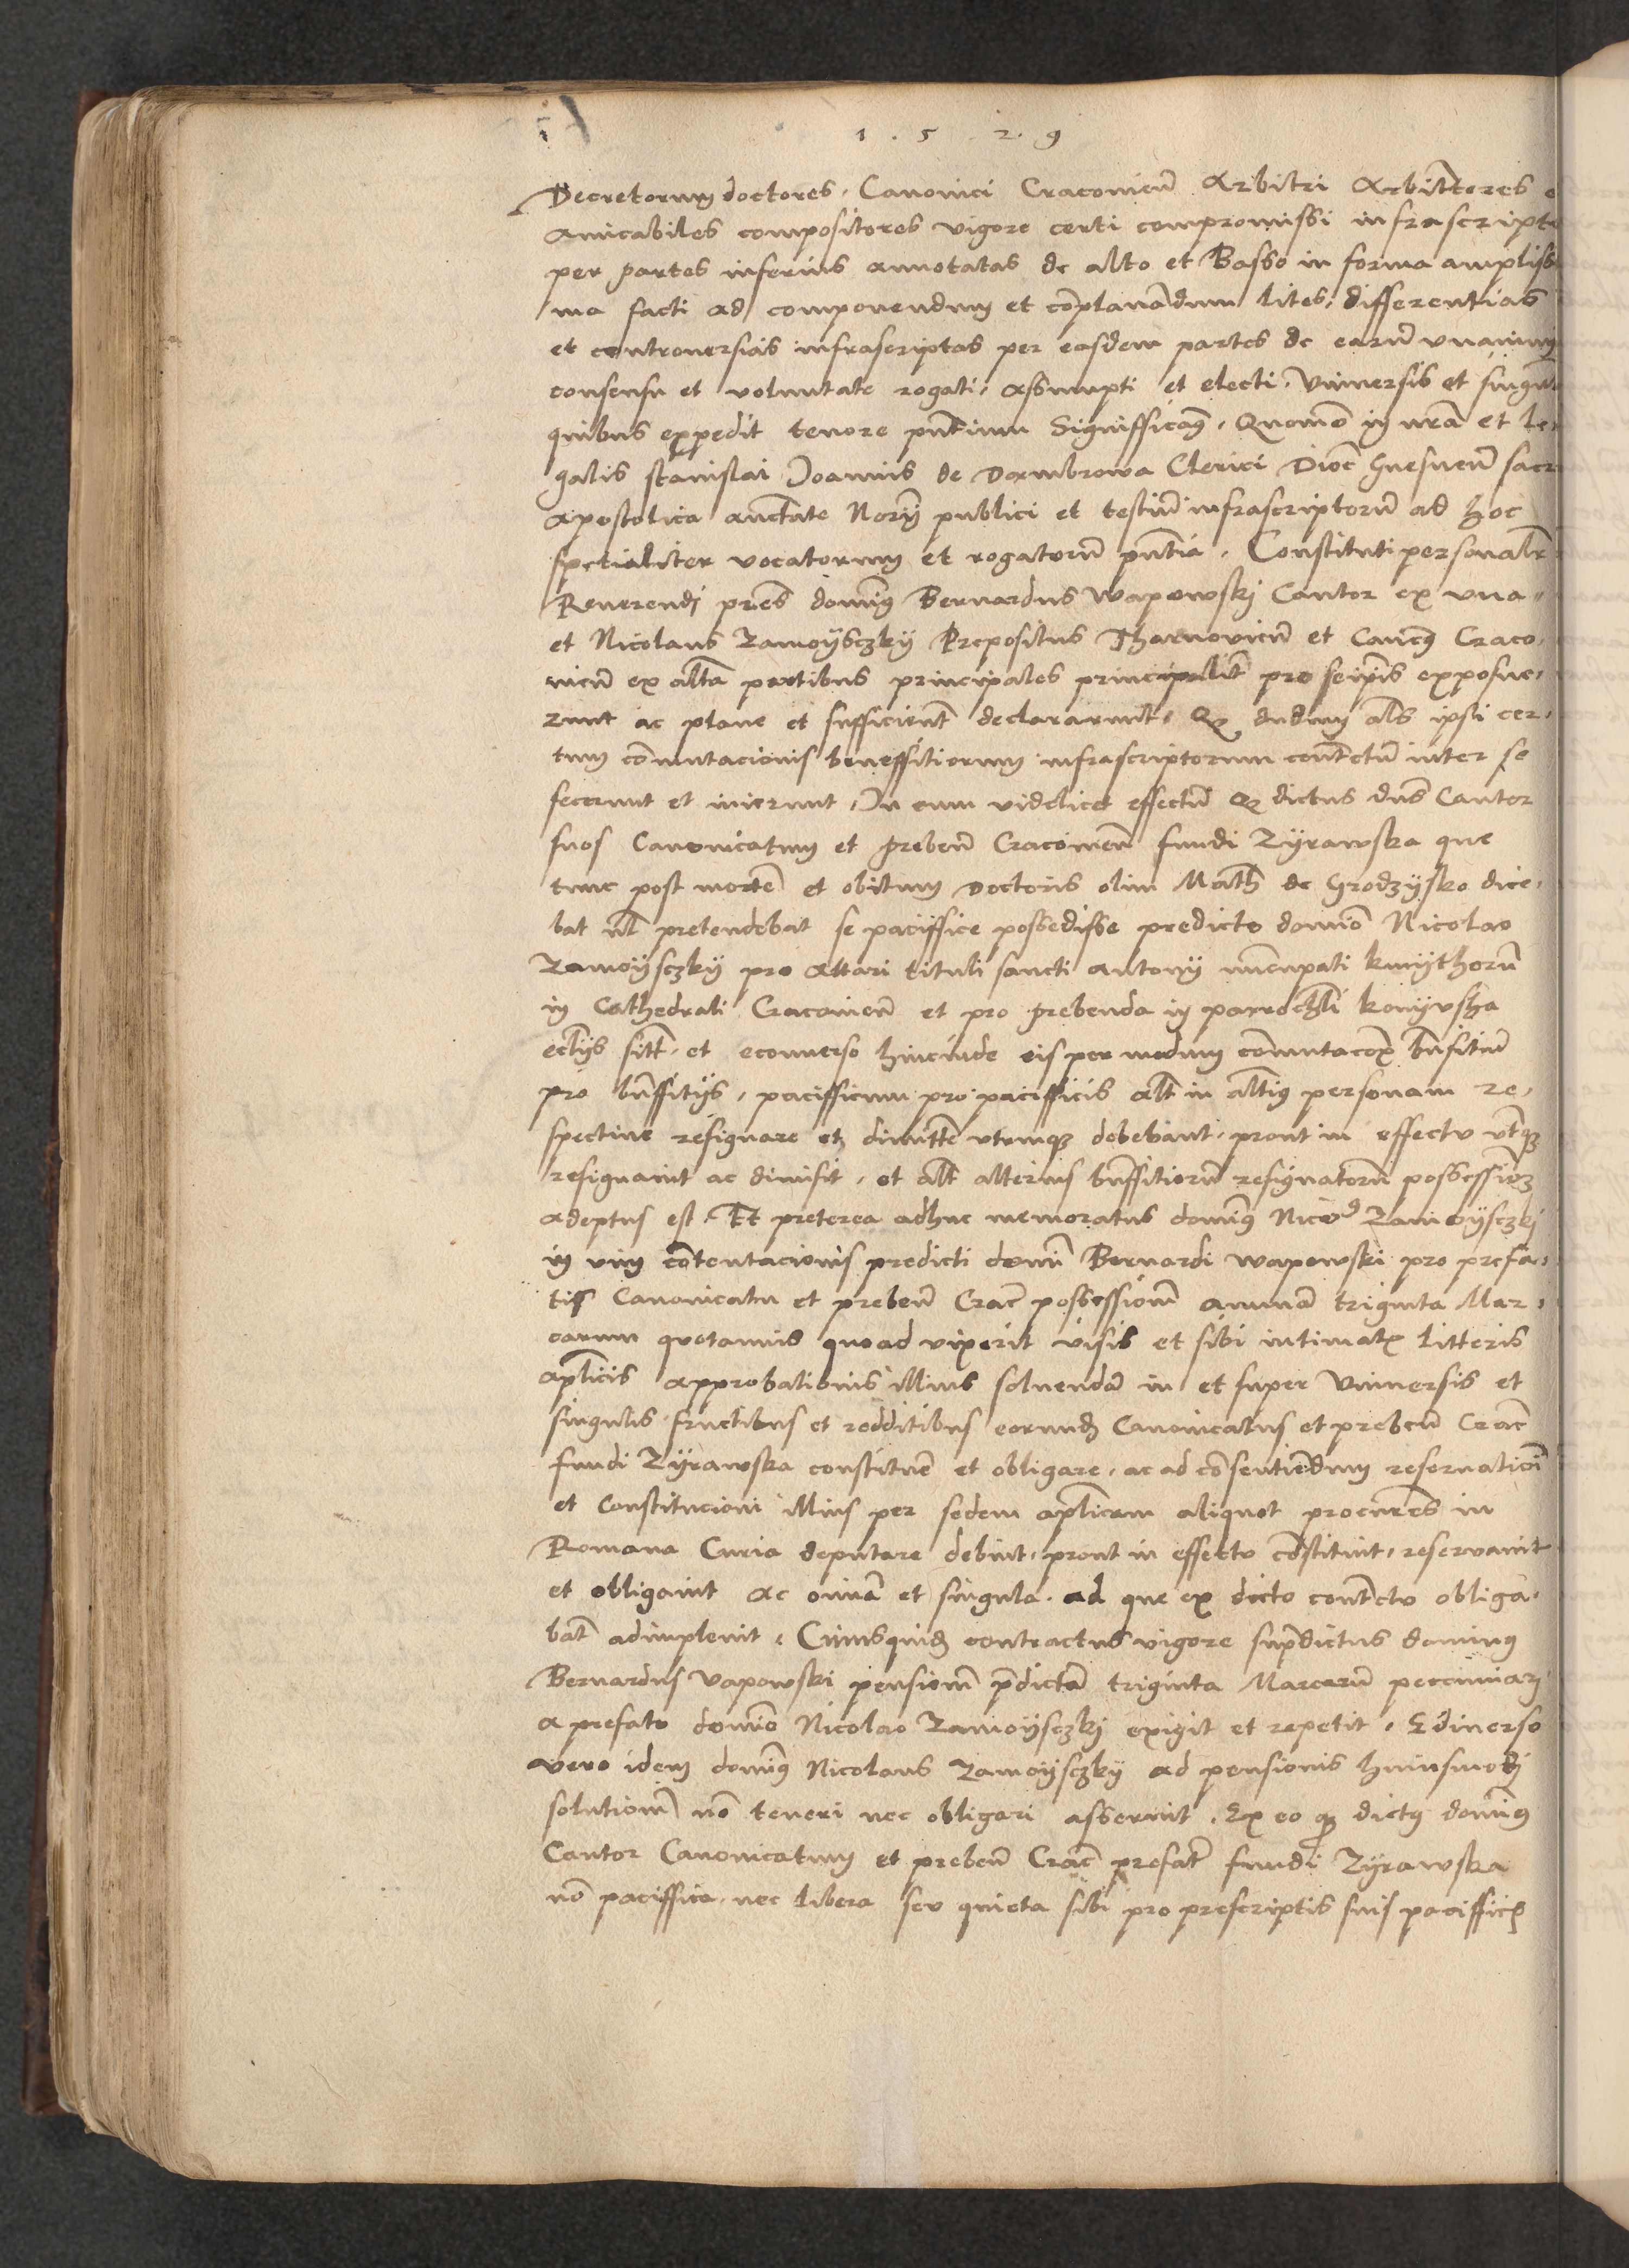 1 . 5 . 2 . 9
Decretorum doctores, Canonici Cracovien̄ Arbitri Arbitratores
Amicabiles compositores vigore certi compromissi infrascripti
per partes inferius annotatas de alto et Basso in forma amplissi
ma facti ad componendum et cōplanādum lites, differentias
et controversias infrascriptas per easdem partes de earū unanimi
consensu et voluntate rogati, assumpti et electi. Universis et singul
quibus expedit tenore pn̄tium Significam9. Quomō in nrā et le
galis stanislai Joannis de Dambrowa Clerici Dioc̄ Gnesnen̄ sacr
apostolica auctāte Norij publici et testiū infrascriptorū ad hoc
spetialiter vocatorum et rogatorū pn̄tia. Constituti personalr̄
Reverendi pr̄es domin9 Bernardus Wapowskj Cantor ex una
et Nicolaus Zamoÿsczkÿ Prepositus Tharnovien̄ et Canc9 Craco,
vien̄ ex altā partibus principales principalit̄ pro seip̄is exposue,
runt ac plane et sufficient̄ declararunt, Q dudum als̄ ipsi cer,
tum com̄utacionis beneffitiorum infrascriptorum contr̄ctū inter se
fecerunt et inierunt, In eum videlicet effectū Q dictus dn̄s Cantor
suos Canonicatum et preben̄ Cracovien̄ fundi Zÿrawska que
tunc post mortē et obitum Doctoris olim Math̄ de Grodzÿsko dice,
bat ul̄ pretendebat se paciffice possedisse predicto domīo Nicolao
Zamoÿsczkÿ pro Altari tituli sancti Antonij nūcupati kmÿthorū
in Cathedrali Cracovien̄ et pro prebenda in parrochli̅ konÿusha
eccl̄ijs sit̄ et econverso hincinde eis per modum com̄utacōis bn̄fitiū
pro bn̄ffitijs, pacifficum pro pacifficis alt̄ in alti9 personam re,
spective resignare et dimitte̅ utrumq3 debebant, prout in effectu utq3
resignavit ac dimisit, et alt̄ alterius bn̄ffitiorū resignatorū possessionē
adeptus est. Et preterea adhuc memoratus domin9 Nico9 Zamoÿsczkj
in vim cōtentacionis predicti domī Bernardi Wapowski pro prefa,
tis Canonicatu et preben̄ Crac̄ possessionem annuā triginta Mar,
carum quotannis quoad vixerit visis et sibi intimatis litteris
apl̄icis approbationis illius solvendā in et super Universis et
singulis fructibus et redditibus eorund Canonicatus et preben̄ Crac̄
fundi Zÿrawska constituē et obligare, ac ad cōsentiēdum reservationi
et Constitucioni illius per sedem apl̄icam aliquot procur̄es in
Romana Curia deputare debuit, prout in effectu cōstituit, reservavit
et obligavit ac omīa et singula. ad que ex dicto contr̄ctu obliga,
bat̄ adimplevit. Cuiusquid contractus vigore supradictus dominus
Bernardus Vapowski pensionē p̄dictā triginta Marcarū peccuniar
a prefato domīo Nicolao Zamoÿsczkj exigit et repetit. E diverso
vero idem domin9 Nicolaus Zamoÿsczkÿ ad pensionis huiusmodi
solutionē nō teneri nec obligari asseruit. Ex eo q dict9 domin9
Cantor Canonicatum et preben̄ Crac̄ prefat̄ fundi Zÿrawska
nō paciffica nec libera seu quieta sibi pro prescriptis suis paciffic